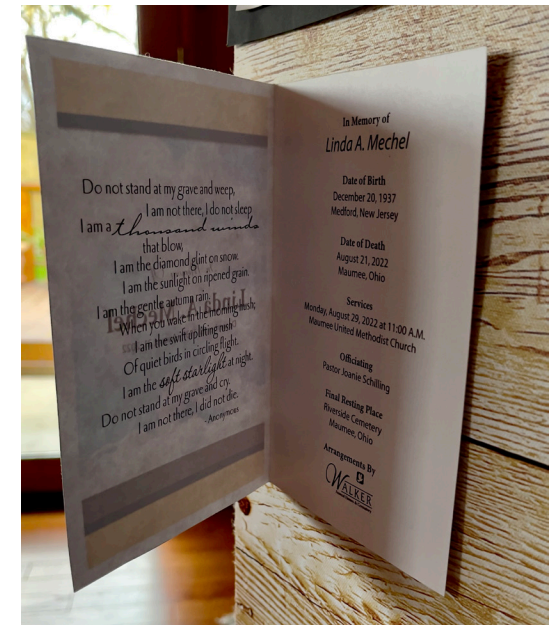 Do not stand at my grave and weep,
I am not there, I do not sleep
I am a thousand winds
that blow,
I am the diamond glint on snow.
I am the sunlight on ripened grain.
I am the gentle autumn rain.
When you wake in the morning hush;
I am the swift uplifting rush
Of quiet birds in circling flight.
I am the soft starlight at night.
Do not stand at my grave and cry.
I am not there, I did not die.
-Anonymous
In Memory of
Linda A. Mechel
Date of Birth
December 20, 1937
Medford, New Jersey
Date of Death
August 21, 2022
Maumee, Ohio
Services
Monday, August 29, 2022 at 11:00 A.M.
Maumee United Methodist Church
Officiating
Pastor Joanie Schilling
Final Resting Place
Riverside Cemetery
Maumee, Ohio
Arrangements By
WALKER